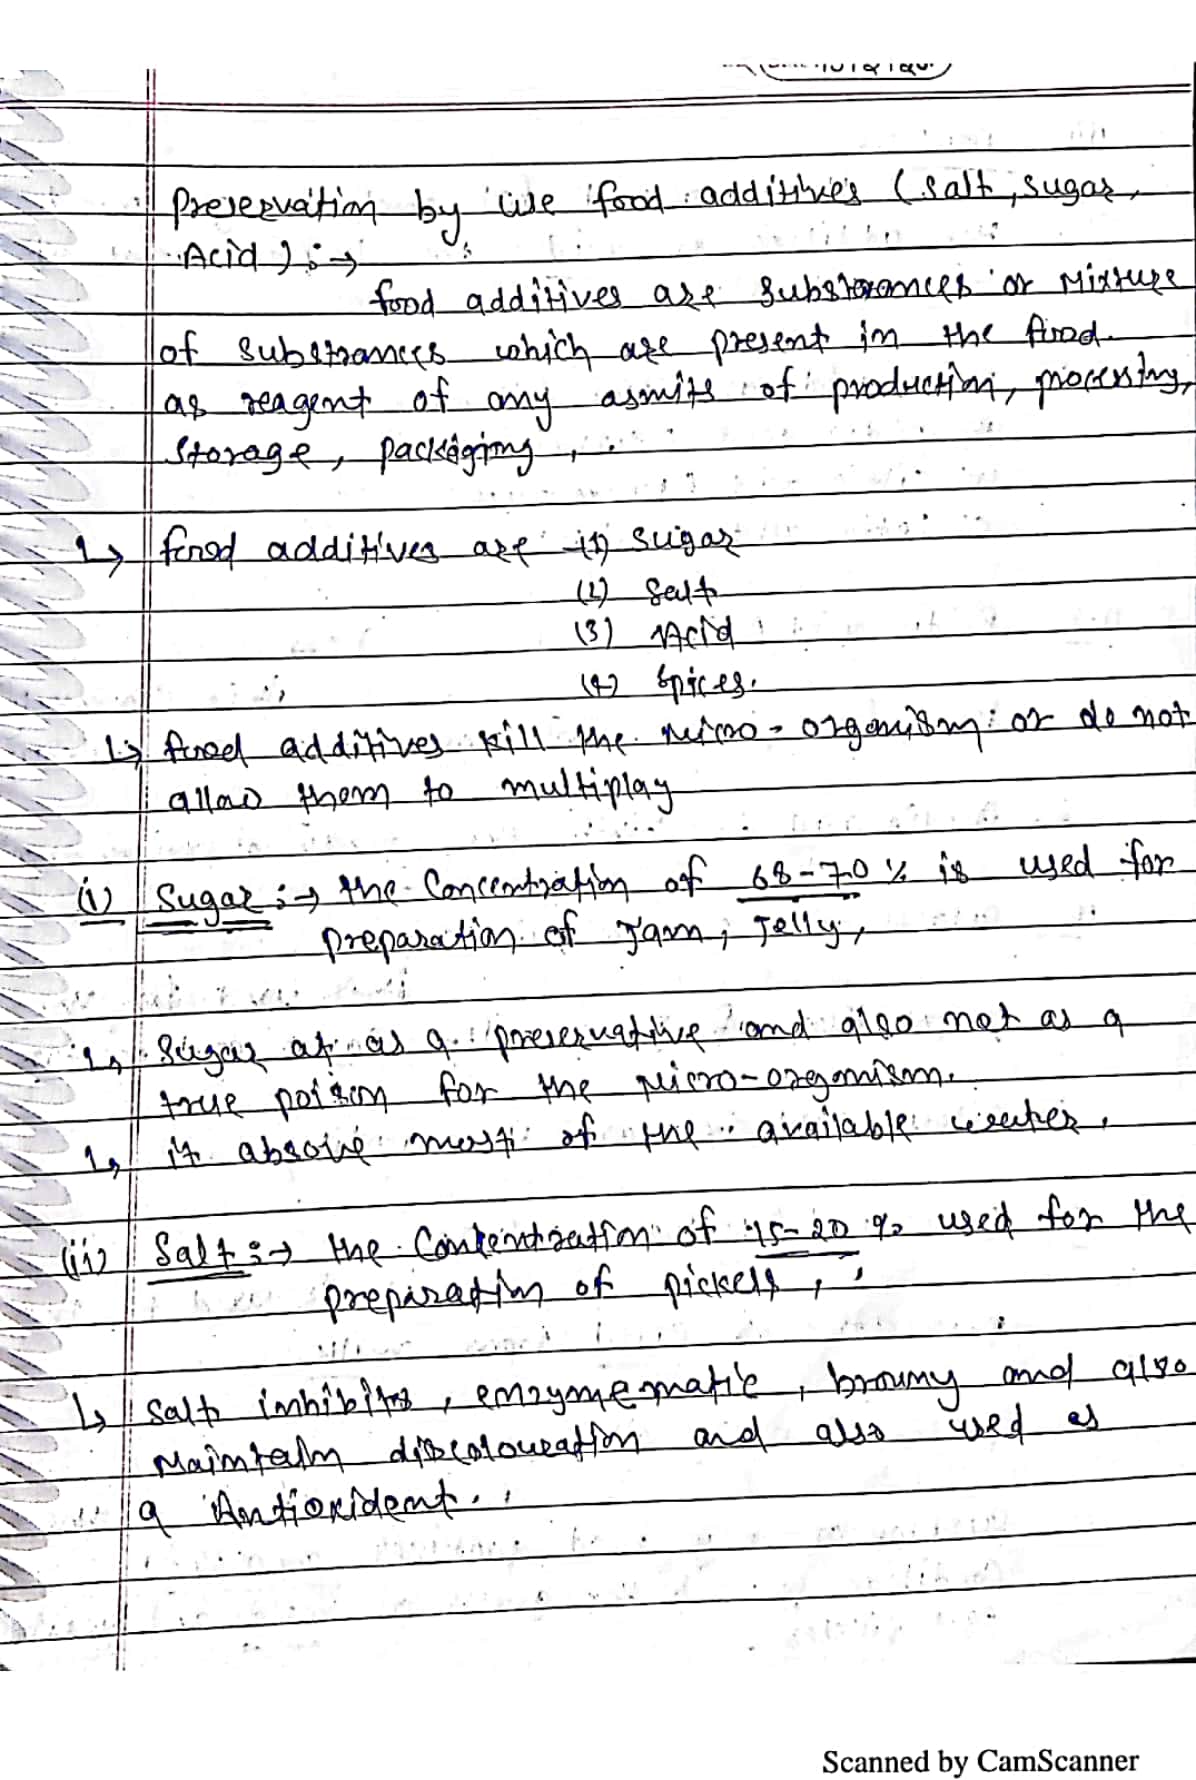 Preservation by use food additives (salt, sugar,
Acid) :→
food additives are substarances or Mixture
of substrances which are present in the food.
as reagent of any asmits of production, processing,
Storage, packaging,
↳ food additives are (1) Sugar
(2) Salt
(3) Acid
(4) Spices.
↳ food additives kill the micro-organism or do not
allow them to multiplay
(i) Sugar :→ the Concentration of 68-70 % is used for
preparation of Jam, Jelly,
↳ Sugar at as a preservative and also not as a
true poison for the micro-organism.
↳ it absorve most of the available water.
(ii) Salt :→ the Concentration of 15-20 % used for the
preparation of pickels,
↳ Salt inhibits, enzymematic, browny and also
Maintain discolouration and also used as
a Antioxident.
Scanned by CamScanner